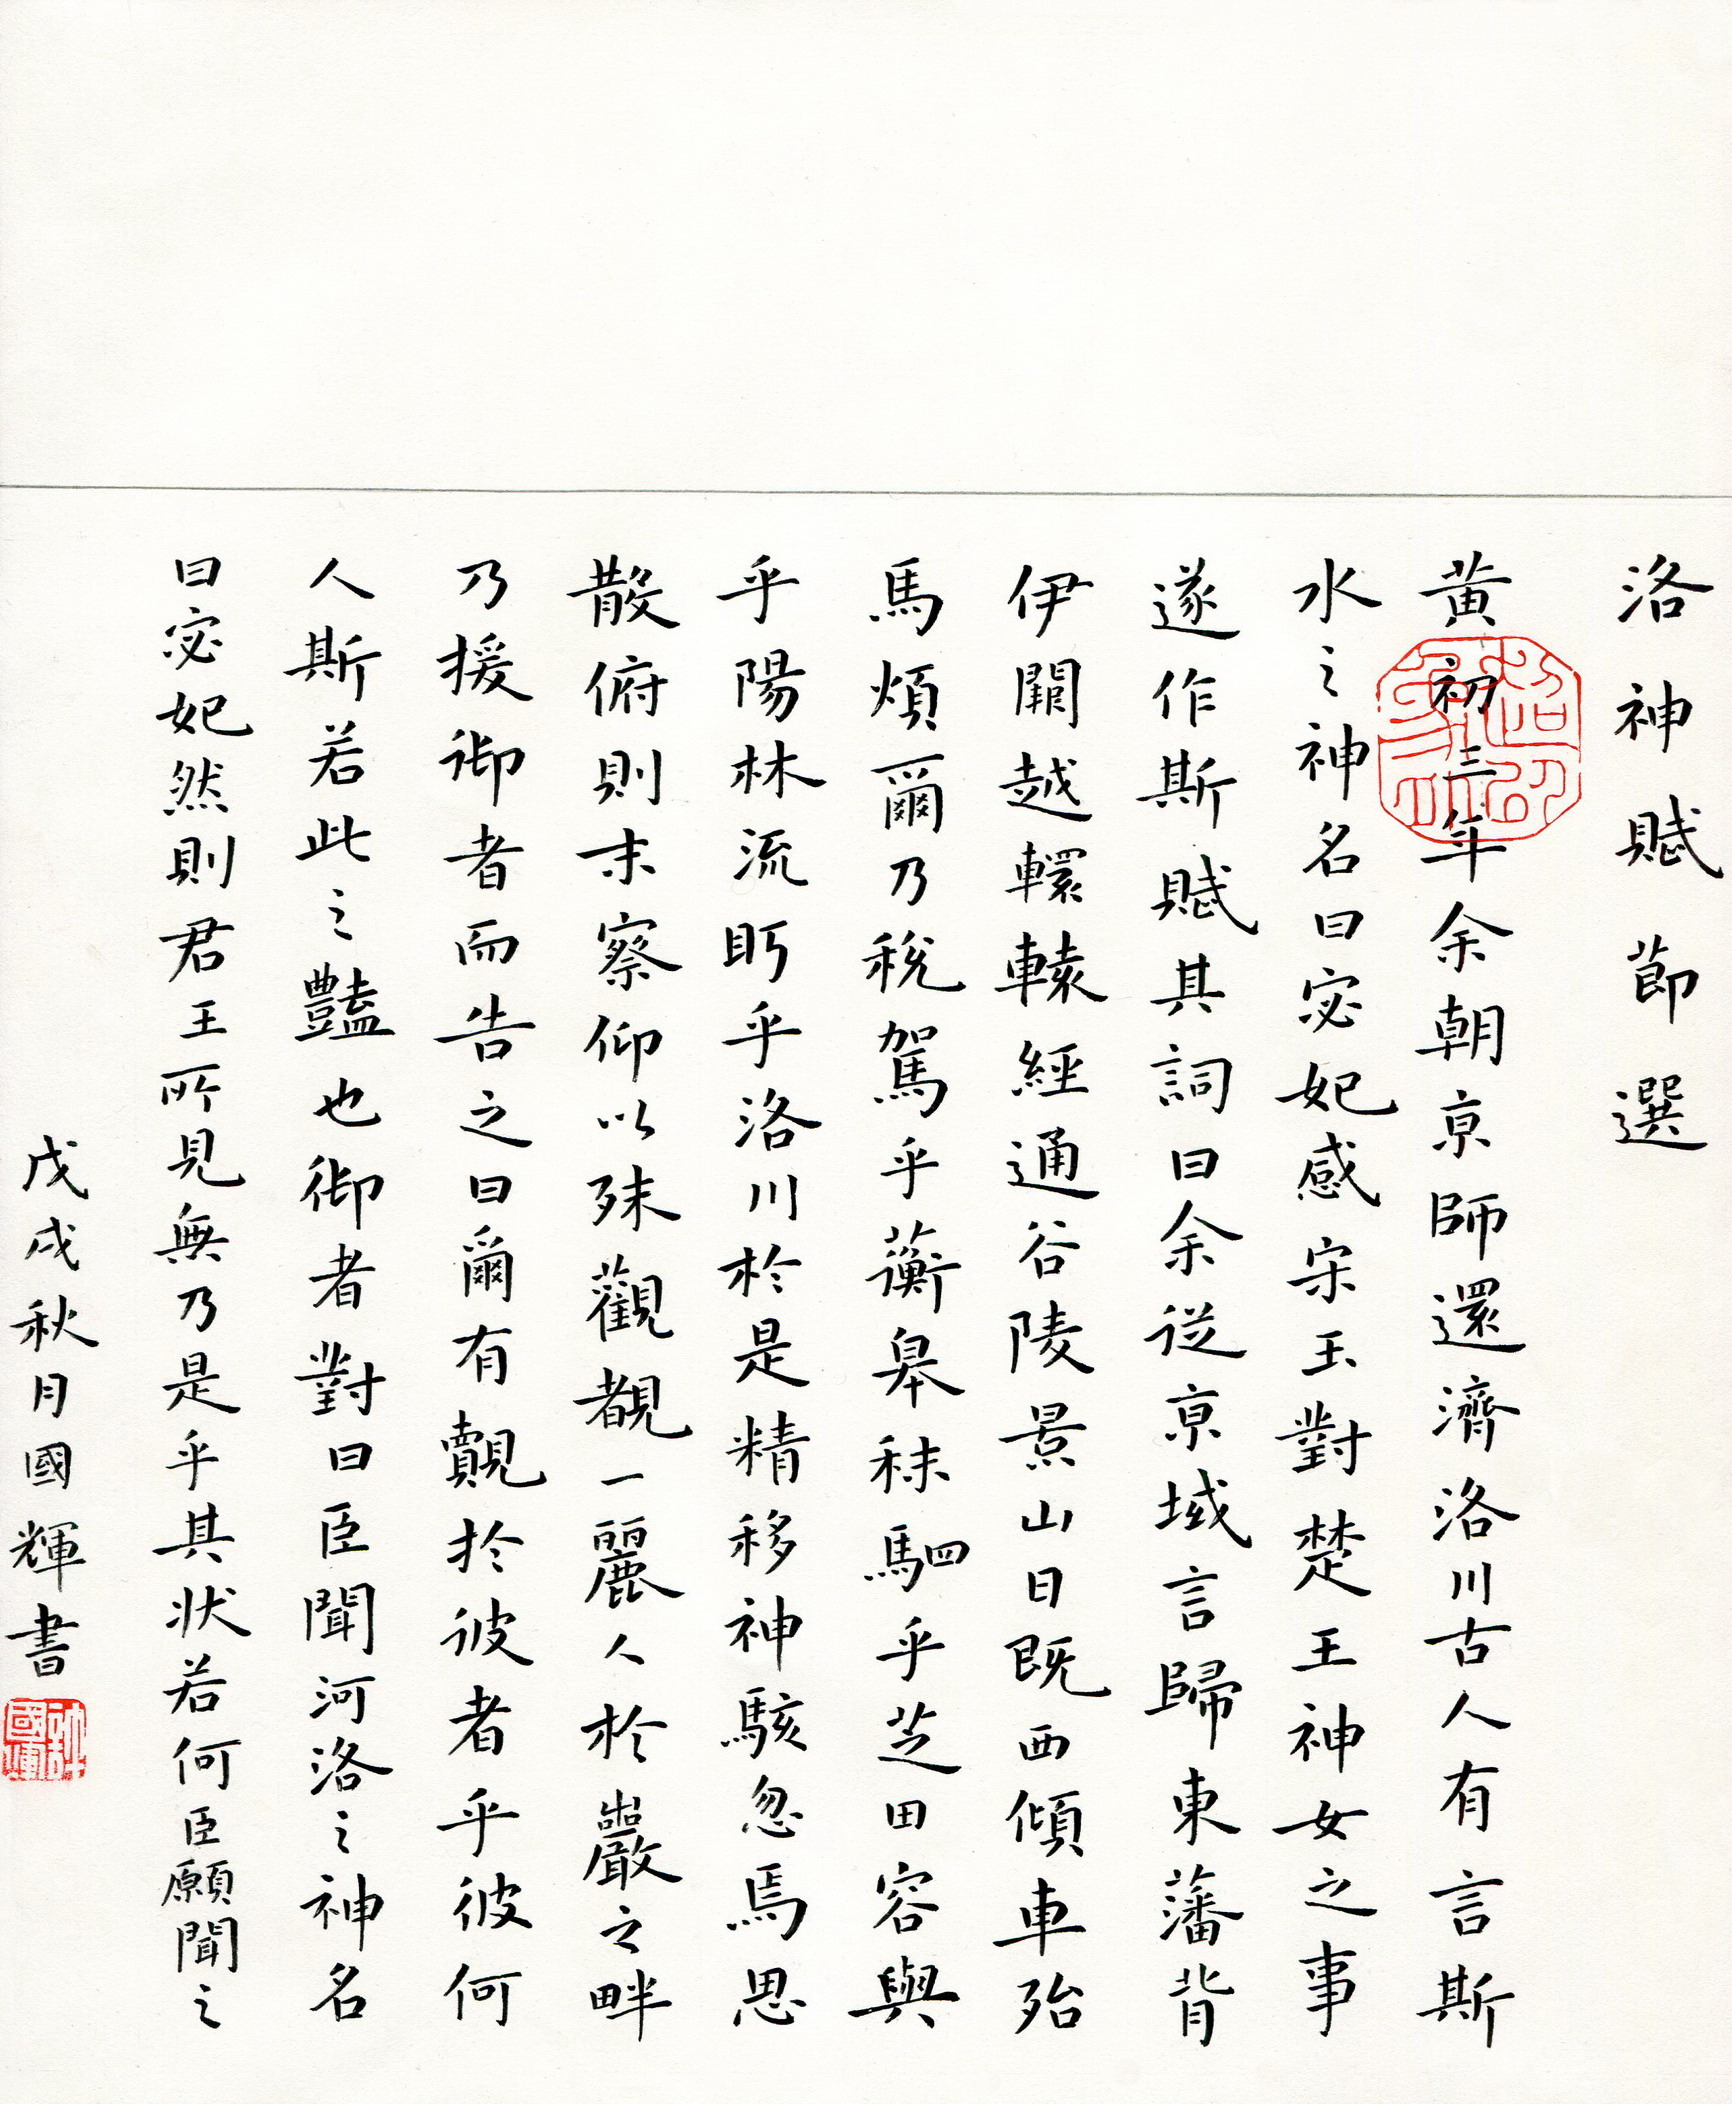 洛神賦節選
黃初三年余朝京師還濟洛川古人有言斯
水之神名曰宓妃感宋玉對楚王神女之事
遂作斯賦其詞曰余從京域言歸東藩背
伊闕越轘轅經通谷陵景山日既西傾車殆
馬煩爾乃稅駕乎蘅皋秣駟乎芝田容與
乎陽林流眄乎洛川於是精移神駭忽焉思
散俯則未察仰以殊觀覩一麗人於巖之畔
乃援御者而告之曰爾有覿於彼者乎彼何
人斯若此之豔也御者對曰臣聞河洛之神名
曰宓妃然則君王所見無乃是乎其狀若何臣願聞之
戊戌秋月國輝書